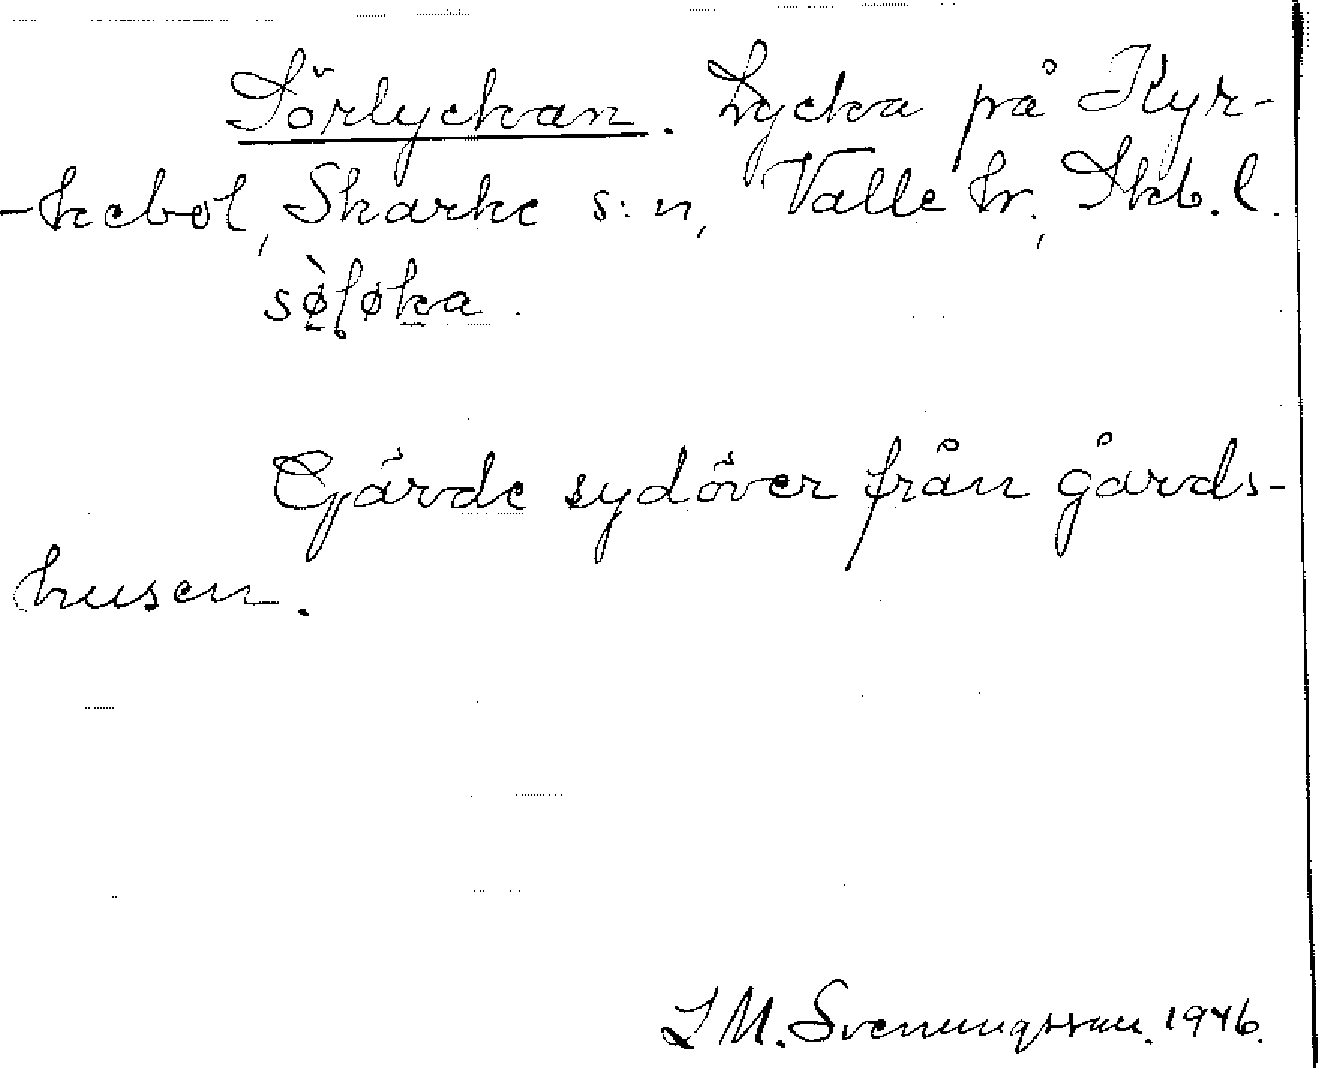 Sörlyckan. Lycka på Kyr-
-kebol, Skarke s:n, Valle hr., Skb. l.
sø̀løka.
Gärde sydöver från gårds-
husen.
I M. Svenungsson. 1946.